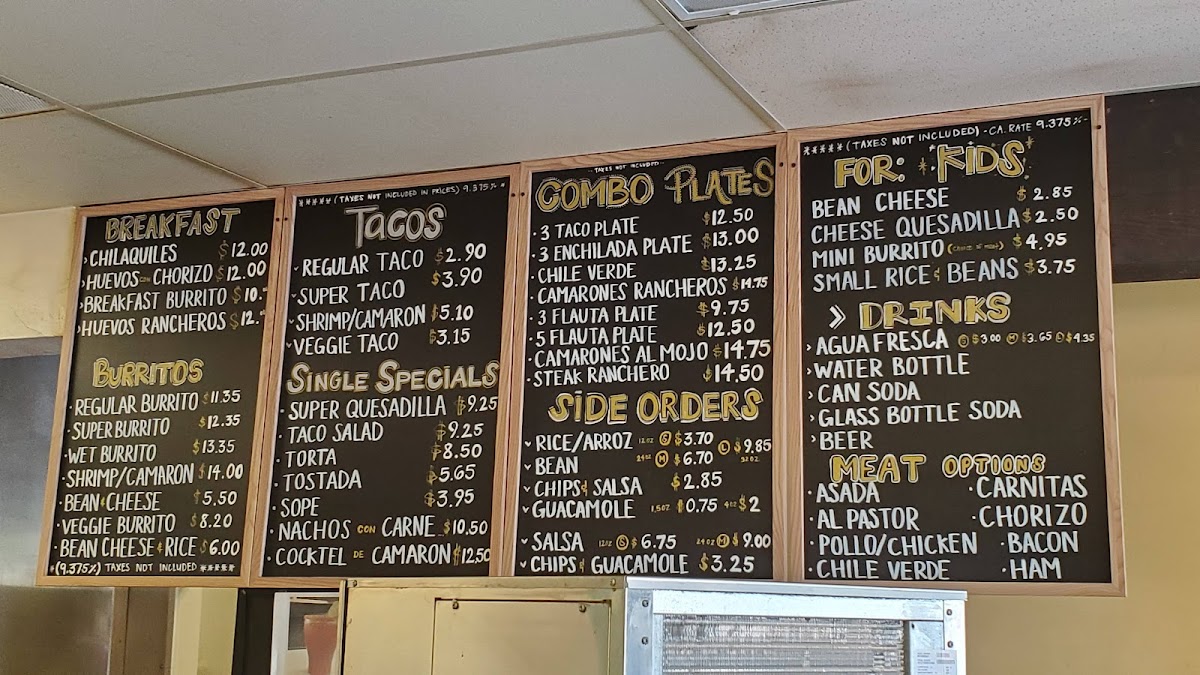 BREAKFAST
CHILAQUILES $12.00
HUEVOS CON CHORIZO $12.00
BREAKFAST BURRITO $10.
HUEVOS RANCHEROS $12.
BURRITOS
REGULAR BURRITO $11.35
SUPER BURRITO $12.35
WET BURRITO $13.35
SHRIMP/CAMARON $14.00
BEAN & CHEESE $5,50
VEGGIE BURRITO $8.20
BEAN CHEESE & RICE $6.00
*(9.375%) TAXES NOT INCLUDED *****
***** (TAXES NOT INCLUDED IN PRICES) 9.375% *
TACOS
REGULAR TACO $2.90
SUPER TACO $3.90
SHRIMP/CAMARON $5.10
VEGGIE TACO $3.15
SINGLE SPECIALS
SUPER QUESADILLA $9.25
TACO SALAD $9.25
TORTA $8.50
TOSTADA $5.65
SOPE $3.95
NACHOS CON CARNE $10.50
COCKTEL DE CAMARON $12,50
TAXES NOT INCLUDED
COMBO PLATES
3 TACO PLATE $12.50
3 ENCHILADA PLATE $13.00
CHILE VERDE $13.25
CAMARONES RANCHEROS $14.75
3 FLAUTA PLATE $9.75
5 FLAUTA PLATE $12.50
CAMARONES AL MOJO $14.75
STEAK RANCHERO $14,50
SIDE ORDERS
RICE/ARROZ 12oz S $3.70 L $9.85
BEAN 24oz M $6.70 32oz
CHIPS & SALSA $2.85
GUACAMOLE 1.5oz $0.75 4oz $2
SALSA 12oz S $6.75 24oz M $9.00
CHIPS & GUACAMOLE $3.25
***** (TAXES NOT INCLUDED) - CA. RATE 9.375%-
FOR: KIDS
BEAN CHEESE $2.85
CHEESE QUESADILLA $2.50
MINI BURRITO (CHOICE OF MEAT) $4,95
SMALL RICE & BEANS $3.75
DRINKS
AGUA FRESCA S $3.00 M $3.65 L $4.35
WATER BOTTLE
CAN SODA
GLASS BOTTLE SODA
BEER
MEAT OPTIONS
ASADA
AL PASTOR
POLLO/CHICKEN
CHILE VERDE
CARNITAS
CHORIZO
BACON
HAM